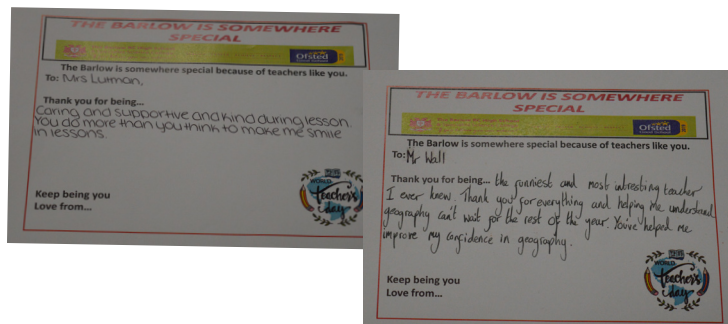 THE BARLOW IS SOMEWHERE
SPECIAL
Ofsted
The Barlow is somewhere special because of teachers like you.
To: Mrs Lutman,
Thank you for being...
Caring and supportive and kind during lesson.
You do more than you think to make me smile
in lessons.
Keep being you
Love from...
WORLD
teacher's
day
THE BARLOW IS SOMEWHERE
SPECIAL
Ofsted
The Barlow is somewhere special because of teachers like you.
To: Mr Wall
Thank you for being... the funniest and most intresting teacher
I ever knew. Thank you for everything and helping me understand
geography can't wait for the rest of the year. You've helped me
improve my confidence in geography.
Keep being you
Love from...
WORLD
teacher's
day